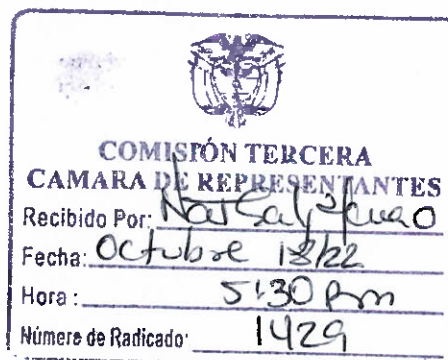 COMISIÓN TERCERA
CAMARA DE REPRESENTANTES
Recibido Por:
Fecha: Octubre 18/22
Hora: 5:30 pm
Número de Radicado: 1429